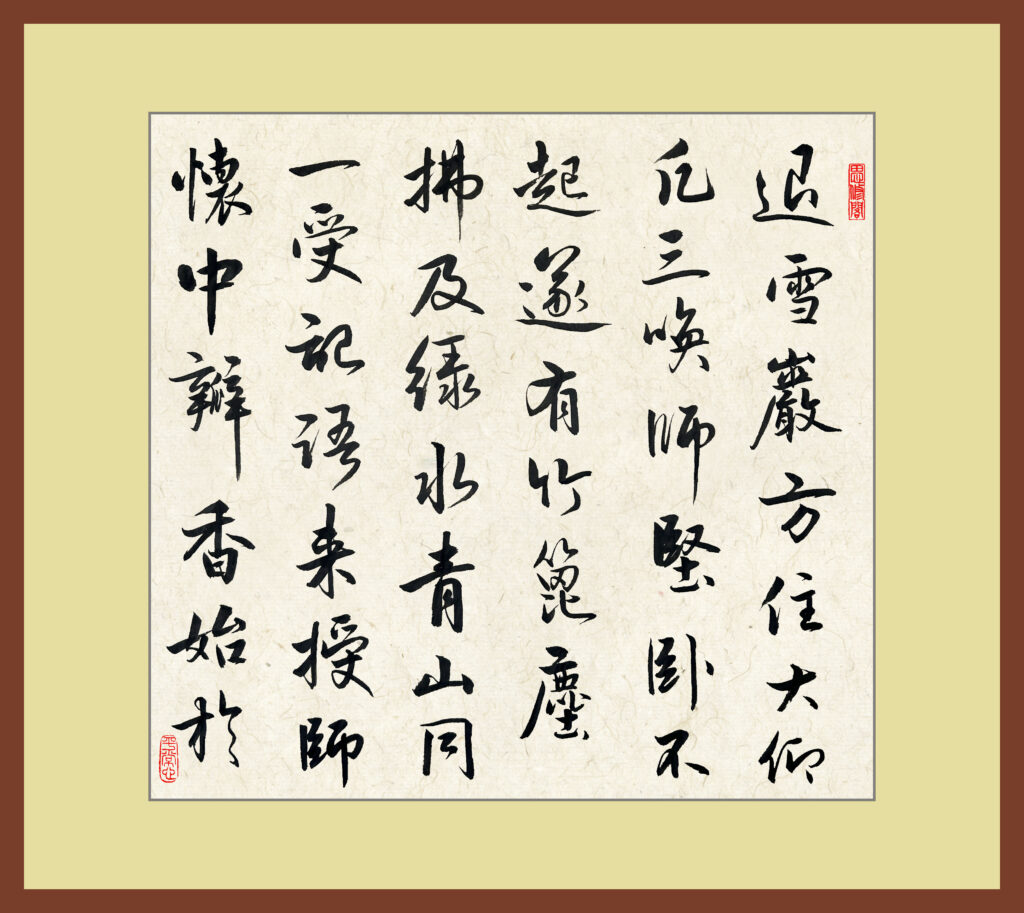 思修閣
退雪巖方住大仰
凡三喚師堅卧不
起遂有竹篦塵
拂及綠水青山同
一受記語来授師
懷中瓣香始於
平常心